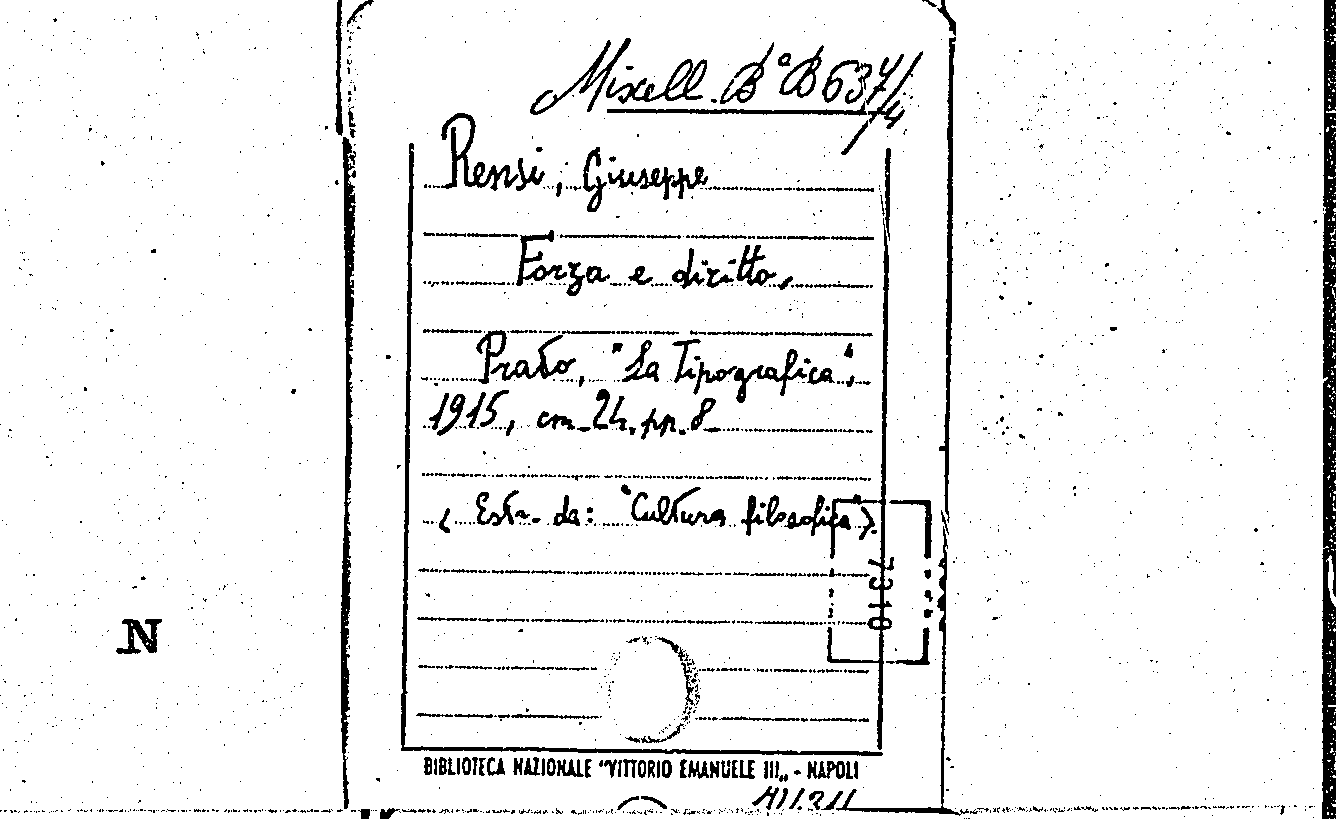 Miscell. Bª B 637/4
Rensi, Giuseppe
Forza e diritto,
Prato, "La Tipografica",
1915, cm. 24, pp. 8
(Estr. da: "Cultura filosofica").
7310
N
BIBLIOTECA NAZIONALE "VITTORIO EMANUELE III„ - NAPOLI